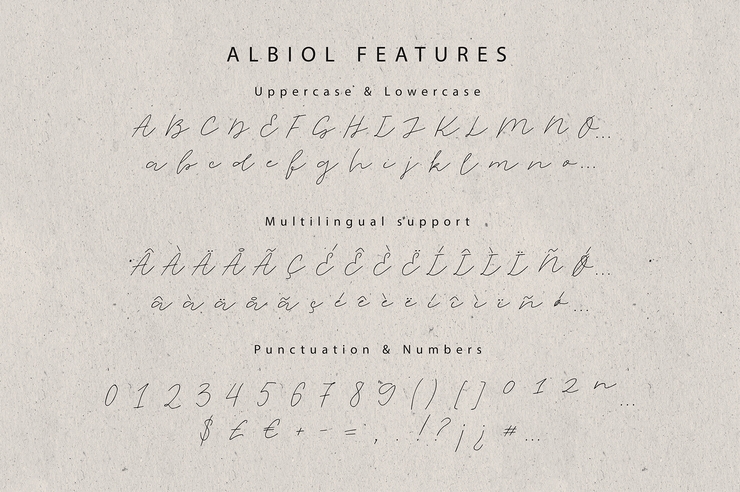 ALBIOL FEATURES
Uppercase & Lowercase
A B C D E F G H I J K L M N O...
a b c d e f g h i j k l m n o...
Multilingual support
Â À Ä Å Ã Ç É Ê È Ë Í Î Ì Ï Ñ Ø...
â à ä å ã ç é ê è ë í î ì ï ñ ø...
Punctuation & Numbers
0 1 2 3 4 5 6 7 8 9 ( ) [ ] ⁰ ¹ ² ⁿ ...
$ £ € + - = , . ! ? ¡ ¿ # ...